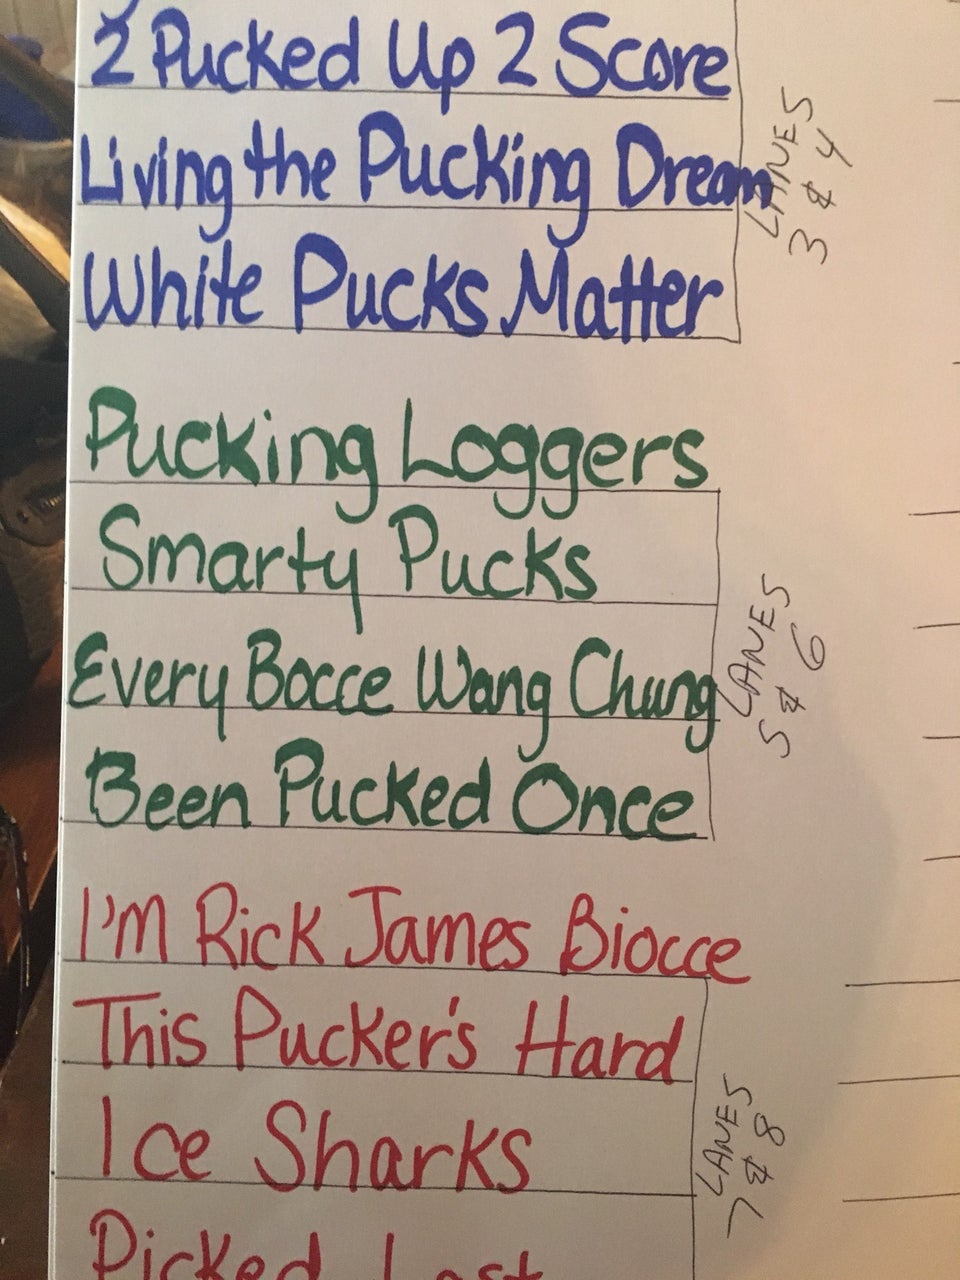 2 Pucked Up 2 Score
Living the Pucking Dream
White Pucks Matter
LANES
3 & 4
Pucking Loggers
Smarty Pucks
Every Bocce Wang Chung
Been Pucked Once
LANES
5 & 6
I'm Rick James Biocce
This Pucker's Hard
Ice Sharks
Picked Last
LANES
7 & 8